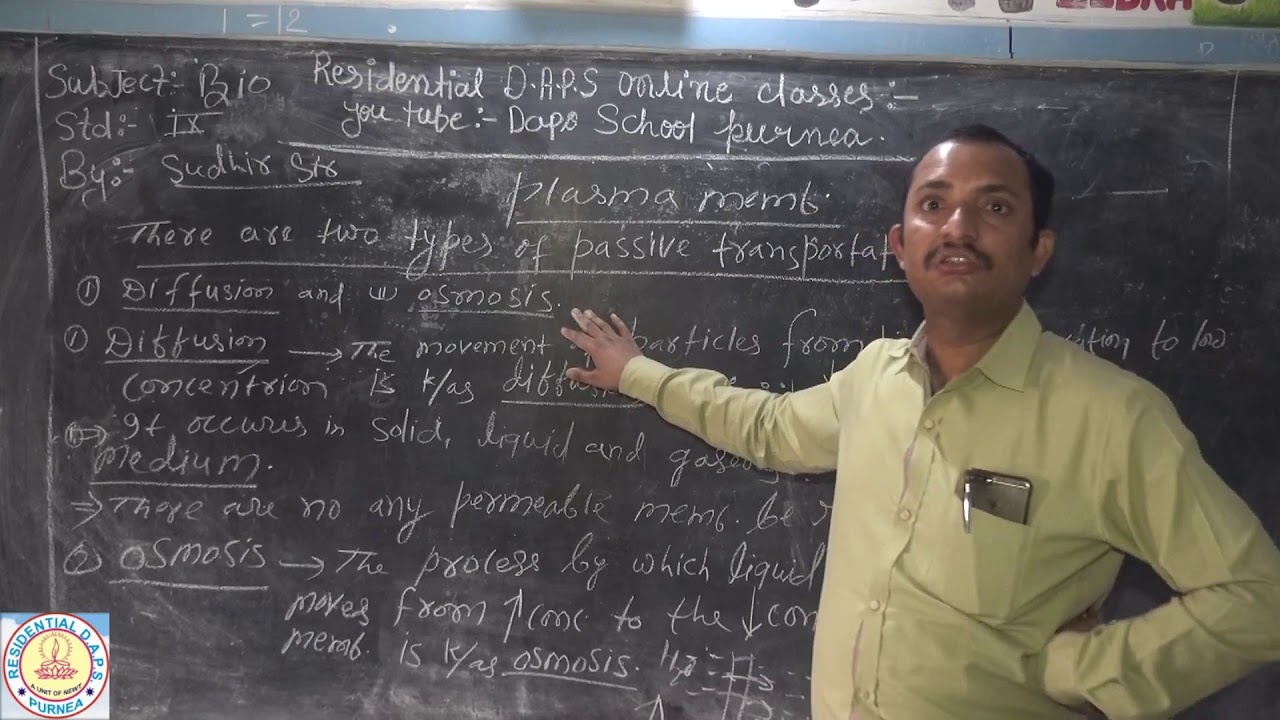 1 = 12
ZEBRA
Subject:- Bio
Residential D.A.P.S online classes:-
Std:- IX
you tube:- Daps School purnea.
By:- Sudhir Sir
plasma memb.
There are two types of passive transportat
① Diffusion and ② osmosis.
① Diffusion → The movement particles from to low
concentrion is k/as diffusion
It occures in solid, liquid and gaseous
medium.
⇒ There are no any permeable memb. be
② osmosis → The process by which liquid
moves from ↑conc to the ↓con
memb. is k/as osmosis. H₂O
RESIDENTIAL D.A.P.S
A UNIT OF NEWT
PURNEA